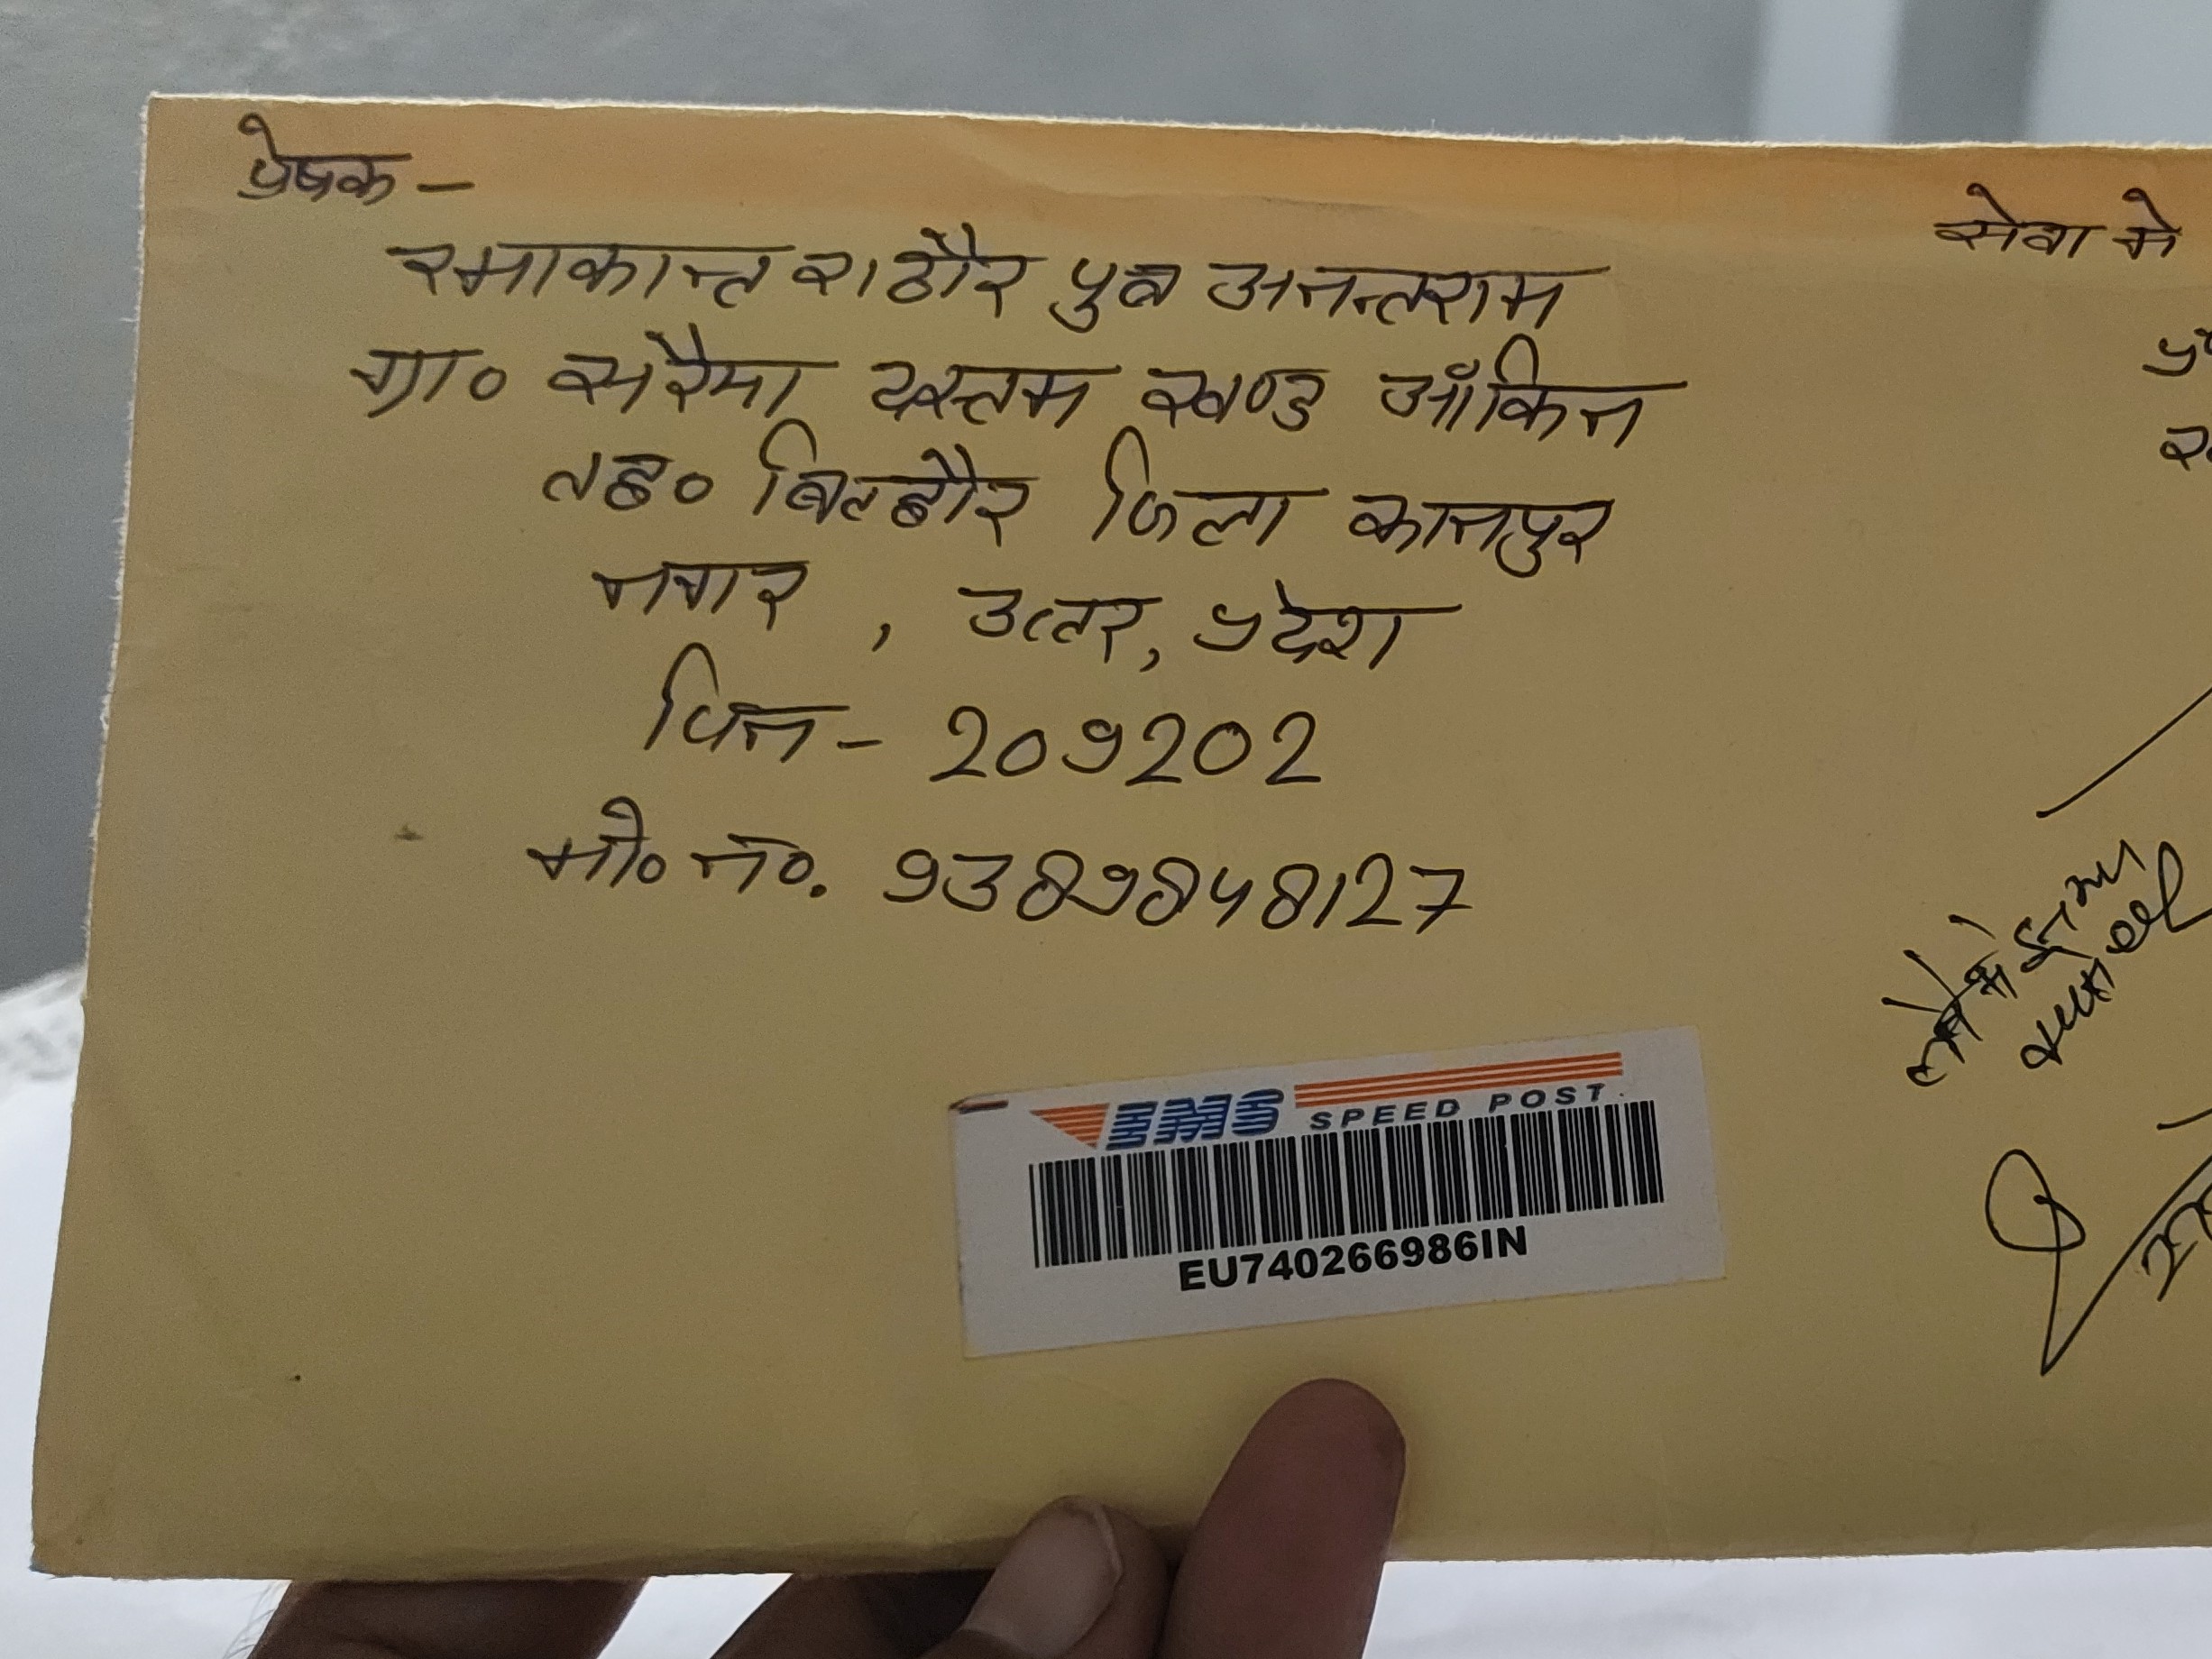 प्रेषक -
रमाकान्त राठौर पुत्र अनन्तराम
ग्रा० सरैया दस्तम खण्ड ऑकिन
तह० बिल्हौर जिला कानपुर
नगर , उत्तर, प्रदेश
पिन - 209202
मो० नं०. 9389848127
सेवा मे
EMS SPEED POST
EU740266986IN